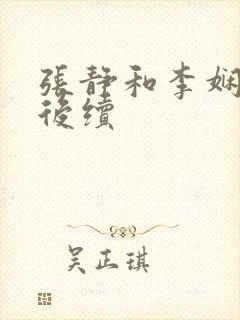 張靜和李娴
後續
吳正琪